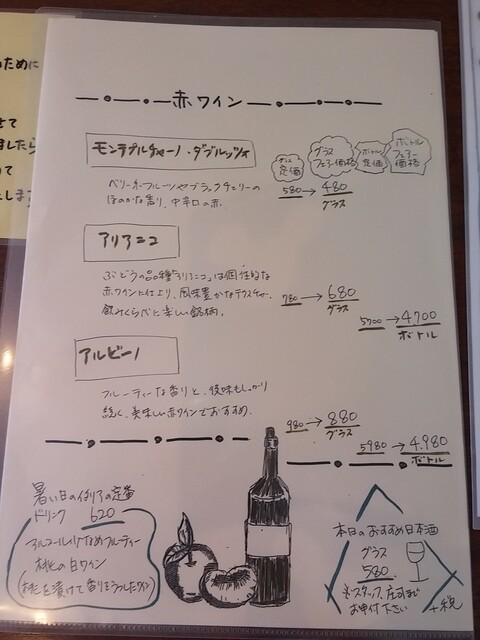 ために
せて
ましたら
て
します
赤ワイン
モンテプルチャーノ・ダブルッツォ
グラス
定価
グラス
フェアー価格
ボトル
定価
ボトル
フェアー
価格
ベリー系フルーツやブラックチェリーの
ほのかな香り、中辛口の赤。
580→480
グラス
アリアニコ
ぶどうの品種「アリアニコ」は個性的な
赤ワインに仕上り、風味豊かなテクスチャー。
飲みくらべに楽しい銘柄。
780→680
グラス
5700→4,700
ボトル
アルビーノ
フルーティーな香りと、後味もしっかり
続く、美味しい赤ワインでおすすめ。
980→880
グラス
5980→4,980
ボトル
暑い日のイタリアの定番
ドリンク 620
アルコール少なめフルーティー
桃の白ワイン
(桃を漬けて香りをうつしたワイン)
本日のおすすめ日本酒
グラス
580
※スタッフ、店主まで
お申付下さい
+税